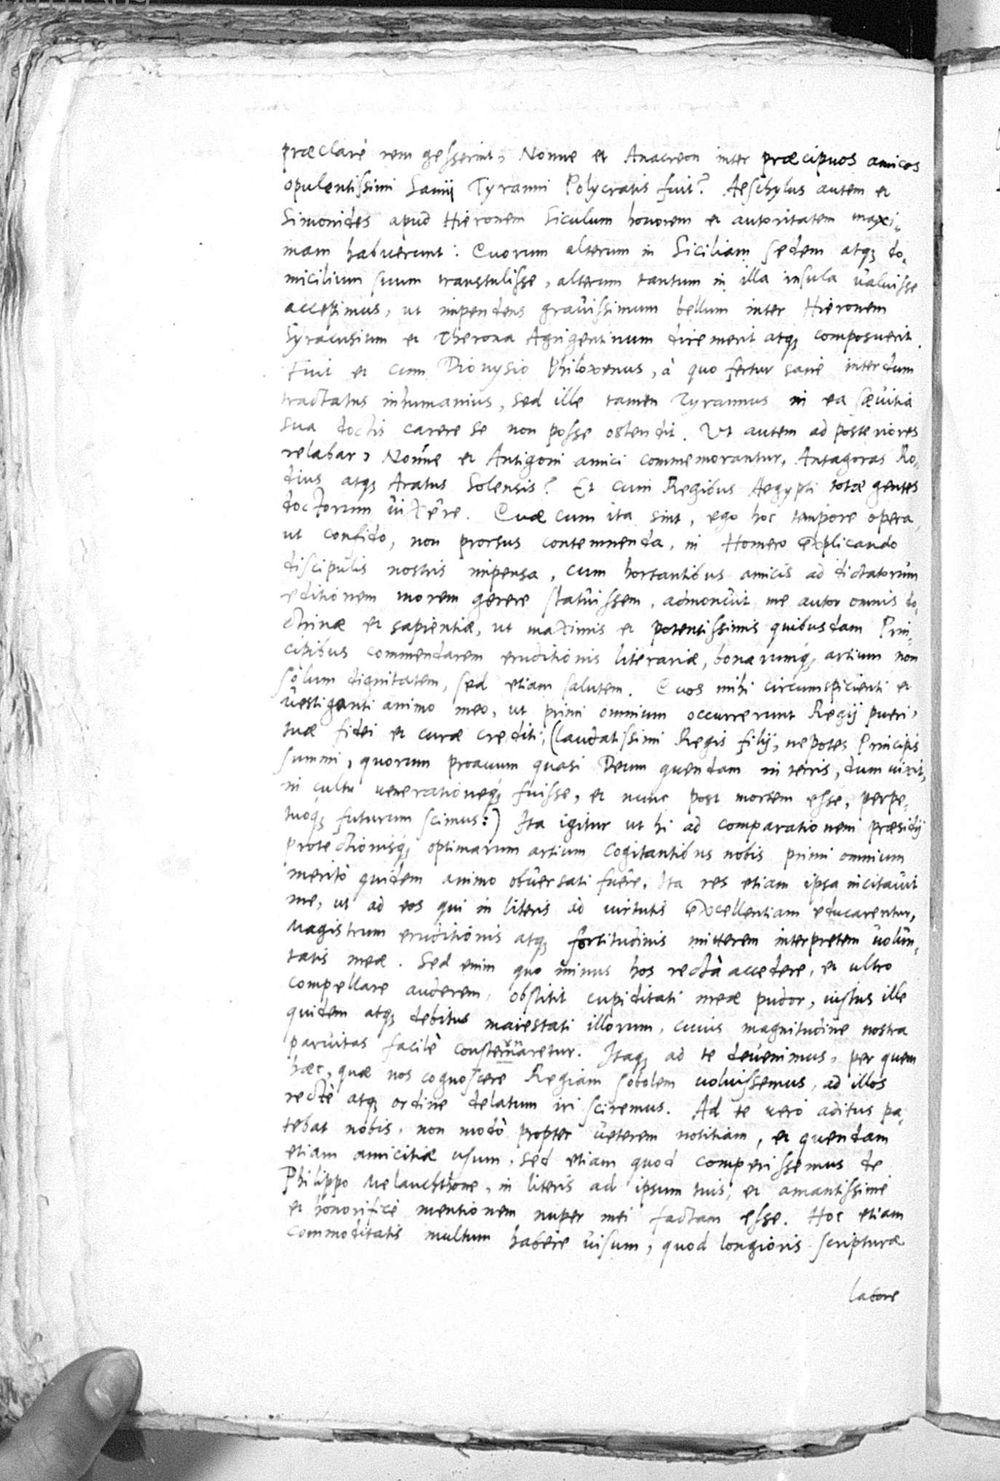 præclarè rem gesserint, Nonne et Anacreon inter præcipuos amicos
opulentissimi Samij Tyranni Polycratis fuit? Aeschylus autem et
Simonides apud Hieronem Siculum honorem et autoritatem maxi,
mam habuerunt: Quorum alterum in Siciliam sedem atq; do,
micilium suum transtulisse, alterum tantum in illa insula valuisse
accepimus, ut impendens gravissimum bellum inter Hieronem
Syracusium et Therona Agrigentinum diremerit atq; composuerit.
Fuit et cum Dionysio Philoxenus, à quo fertur sane interdum
tractatus inhumanius, sed ille tamen Tyrannus in ea sævitia
sua doctis carere se non posse ostendit. Ut autem ad posteriores
relabar, Nonne et Antigoni amici commemorantur, Antagoras Ro,
dius atq; Aratus Solensis? Et cum Regibus Aegypti totæ gentes
doctorum vixêre. Quæ cum ita sint, ego hoc tempore opera,
ut confido, non prorsus contemnenda, in Homero explicando
discipulis nostris impensa, cum hortantibus amicis ad dictatorum
editionem morem gerere statuissem, admonuit me autor omnis do,
ctrinæ et sapientiæ, ut maximis et potentissimis quibusdam Prin,
cipibus commendarem eruditionis literariæ, bonarumq; artium non
solum dignitatem, sed etiam salutem. Quos mihi circumspicienti et
vestiganti animo meo, ut primi omnium occurrerunt Regij pueri,
tuæ fidei et curæ crediti, (laudatissimi Regis filij, nepotes Principis
summi, quorum proavum quasi Deum quendam in terris, dum vixit,
in cultu venerationeq; fuisse, et nunc post mortem esse, perpe,
tuoq; futurum scimus:) Ita igitur ut hi ad comparationem præsidij
protectionisq; optimarum artium cogitantibus nobis primi omnium
meritò quidem animo obversati fuêre, Ita res etiam ipsa incitavit
me, ut ad eos qui in literis ad virtutis excellentiam educarentur,
Magistrum eruditionis atq; fortitudinis mitterem interpretem volun,
tatis meæ. Sed enim quo minus hos rectà accedere, et ultro
compellare auderem, obstitit cupiditati meæ pudor, iustus ille
quidem atq; debitus maiestati illorum, cuius magnitudine nostra
parvitas facilè consternaretur. Itaq; ad te devenimus, per quem
hæc, quæ nos cognoscere Regiam sobolem voluissemus, ad illos
rectè atq; ordine delatum iri sciremus. Ad te verò aditus pa,
tebat nobis, non modò propter veterem notitiam, et quendam
etiam amicitiæ usum, sed etiam quod comperissemus de
Philippo Melanchthone, in literis ad ipsum tuis, et amantissimè
et honorificè mentionem nuper mei factam esse. Hoc etiam
commoditatis multum habere visum, quod longioris scripturæ
labore